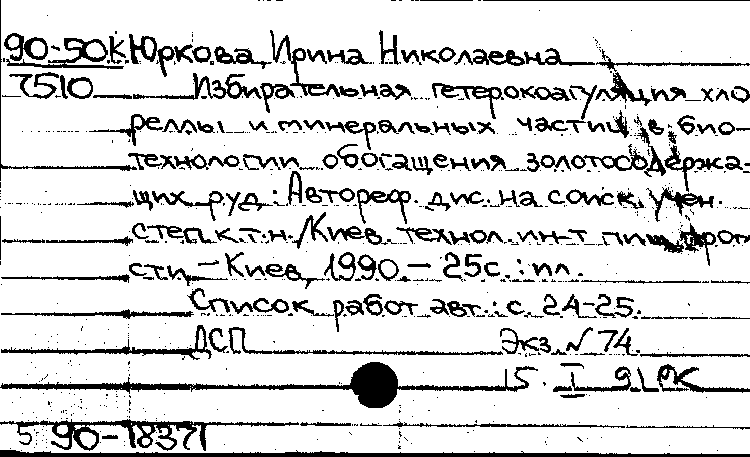 90-50К Юркова, Ирина Николаевна
7510 Избирательная гетерокоагуляция хло
реллы и минеральных частиц в био-
технологии обогащения золотосодержа-
щих руд : Автореф. дис. на соиск. учен.
степ. к.т.н. / Киев. технол. ин-т пищ. пром
сти. – Киев, 1990. – 25с. : ил.
Список работ авт.: с. 24-25.
ДСП Экз. № 74.
15. I 91
5 90-18371